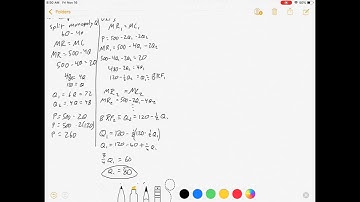 8:30 AM Fri Nov 19
Folders
split monopoly Q
60-40
MR = MC
MR = 500-4Q
500-4Q = 20
480 = 4Q
120 = Q
Q₁ = .6Q = 72
Q₂ = .4Q = 48
P = 500-2Q
P = 500-2(120)
P = 260
MR₁ = MC₁
P = 500-2Q₁-2Q₂
MR₁ = 500-4Q₁-2Q₂
500-4Q₁-2Q₂ = 20
480-2Q₂ = 4Q₁
120-½Q₂ = Q₁ = BRF₁
MR₂ = MC₂
MR₂ = 500-2Q₁-4Q₂
BRF₂ = Q₂ = 120-½Q₁
Q₁ = 120-½(120-½Q₁)
Q₁ = 120-60+¼Q₁
¾Q₁ = 60
Q₁ = 80